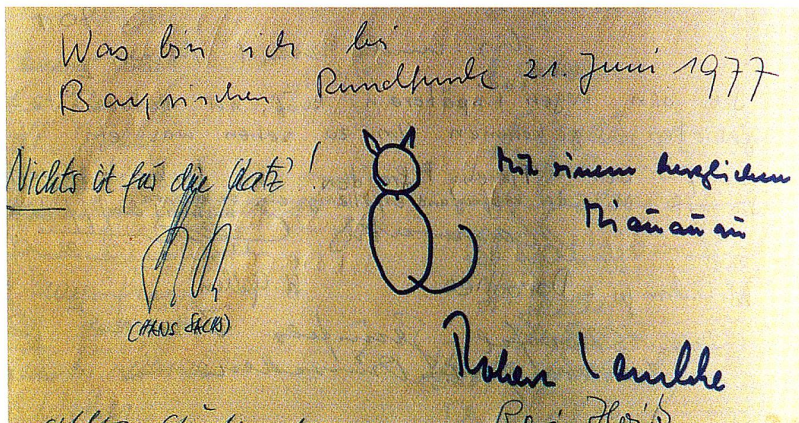 Was bin ich bei
Bayrischen Rundfunk 21. Juni 1977
Nichts ist für die Katz'!
(HANS SACHS)
Mit einem herzlichen
Miauauau
Robert Lembke